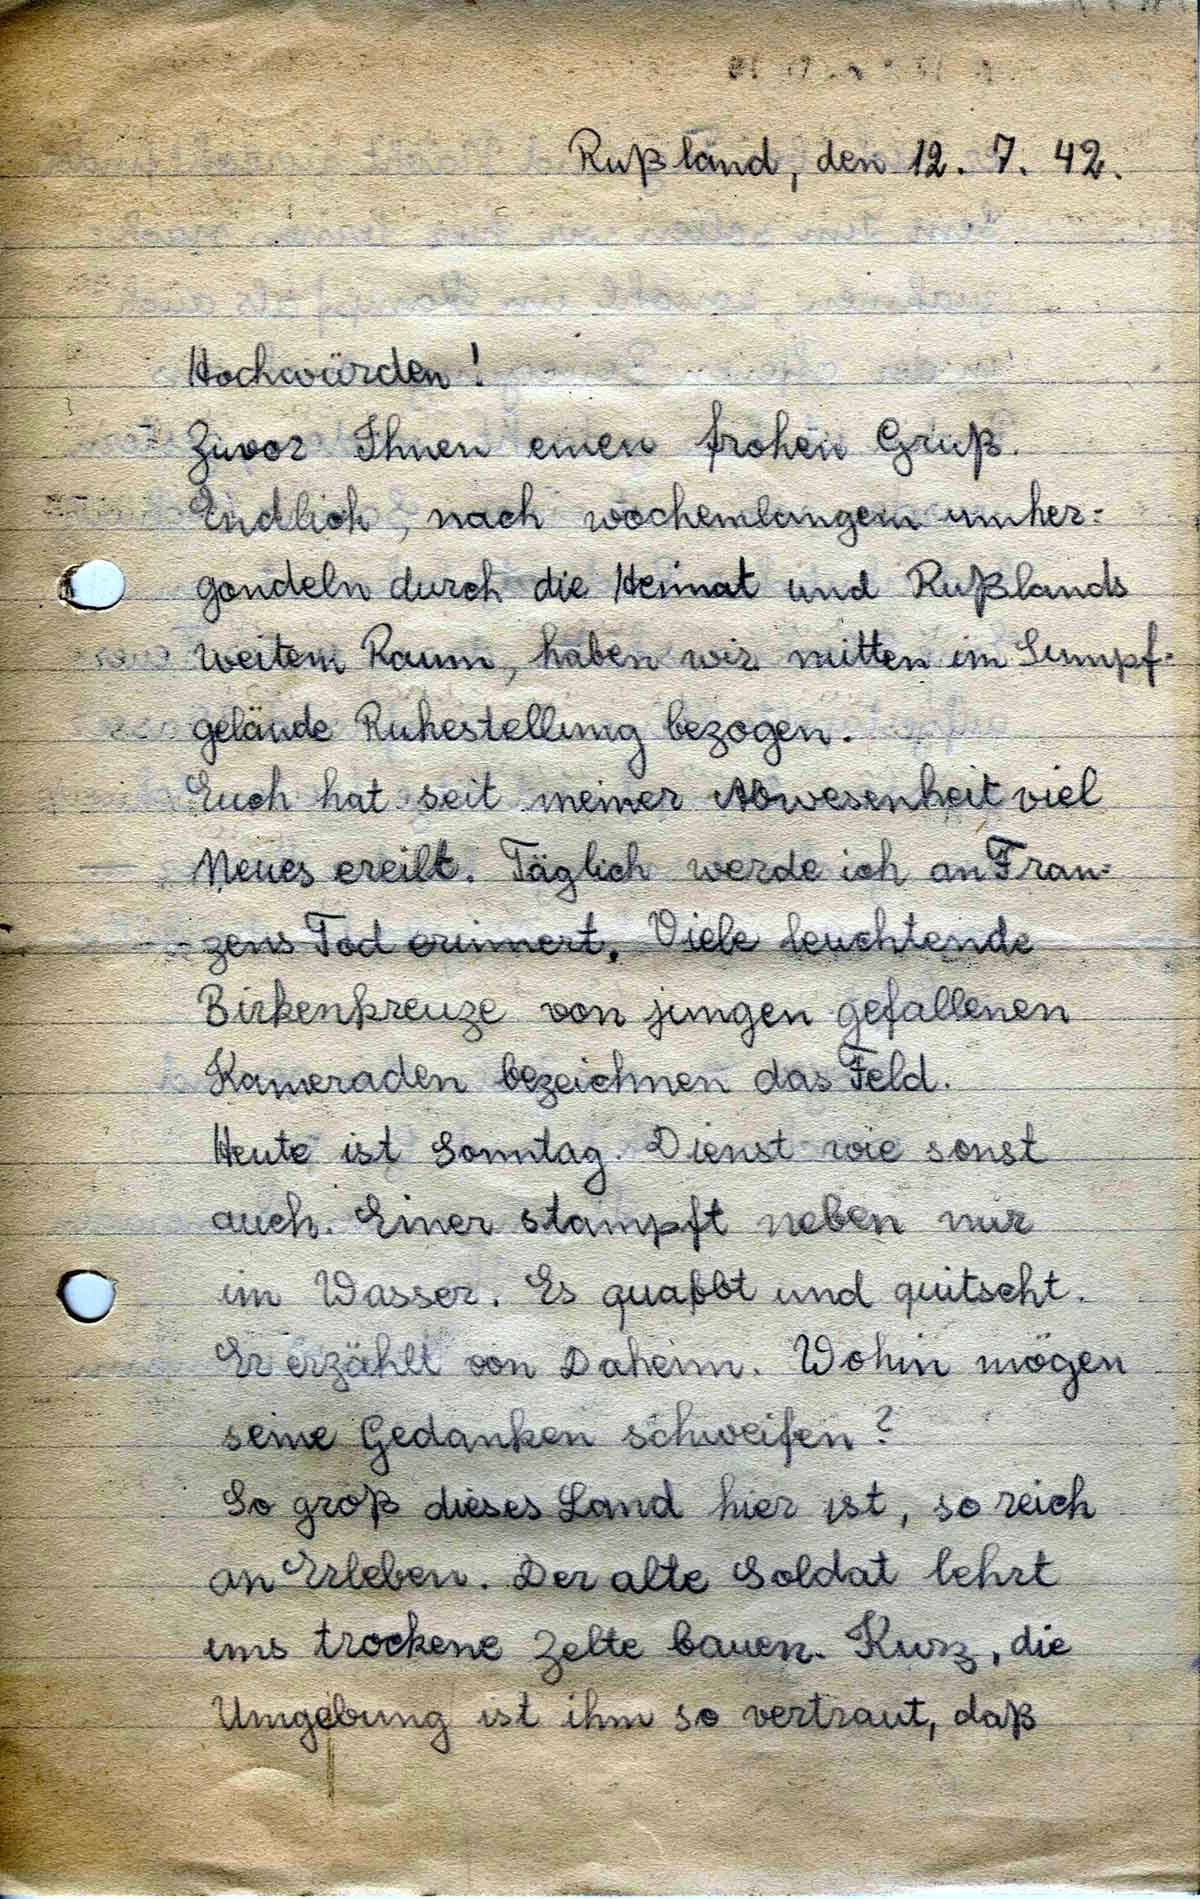 Rußland, den 12. 7. 42.
Hochwürden!
Zuvor Ihnen einen frohen Gruß.
Endlich, nach wochenlangem umher-
gondeln durch die Heimat und Rußlands
weitem Raum, haben wir mitten im Sumpf-
gelände Ruhestellung bezogen.
Euch hat seit meiner Abwesenheit viel
Neues ereilt. Täglich werde ich an Fran-
zens Tod erinnert. Viele leuchtende
Birkenkreuze von jungen gefallenen
Kameraden bezeichnen das Feld.
Heute ist Sonntag. Dienst wie sonst
auch. Einer stampft neben mir
im Wasser. Es quabbt und quitscht.
Er erzählt von Daheim. Wohin mögen
seine Gedanken schweifen?
So groß dieses Land hier ist, so reich
an Erleben. Der alte Soldat lehrt
uns trockene Zelte bauen. Kurz, die
Umgebung ist ihm so vertraut, daß